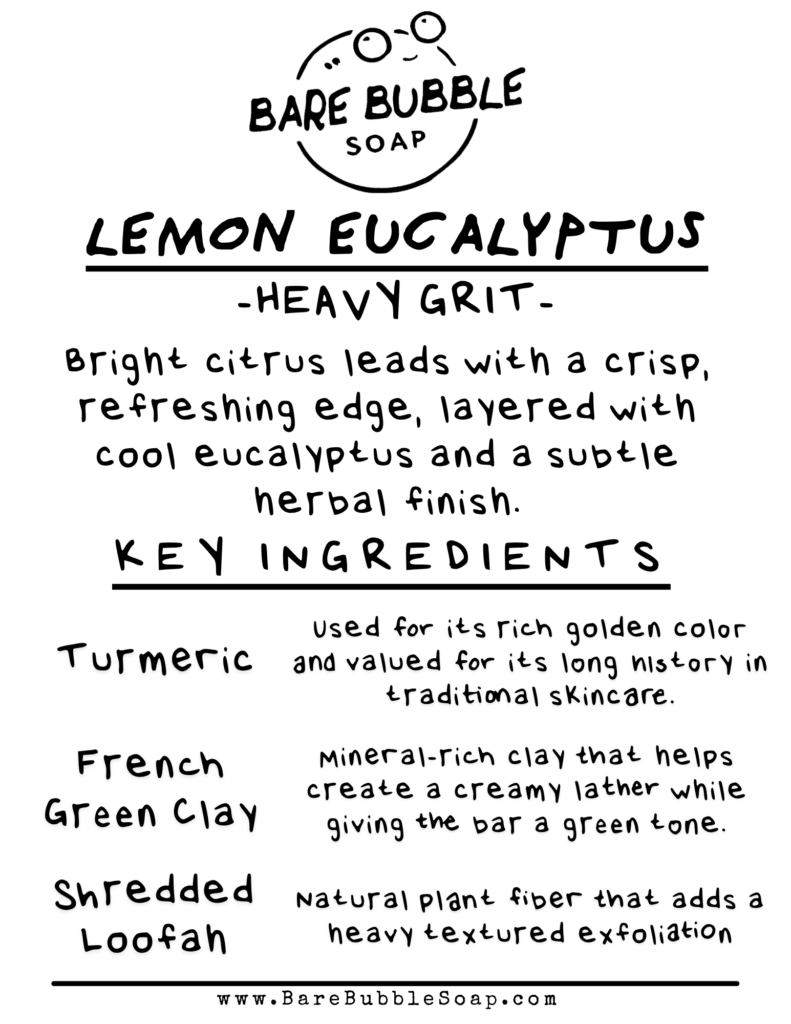 BARE BUBBLE
SOAP
LEMON EUCALYPTUS
-HEAVY GRIT-
Bright citrus leads with a crisp,
refreshing edge, layered with
cool eucalyptus and a subtle
herbal finish.
KEY INGREDIENTS
Turmeric
Used for its rich golden color
and valued for its long history in
traditional skincare.
French
Green Clay
Mineral-rich clay that helps
create a creamy lather while
giving the bar a green tone.
Shredded
Loofah
Natural plant fiber that adds a
heavy textured exfoliation
www.BareBubbleSoap.com